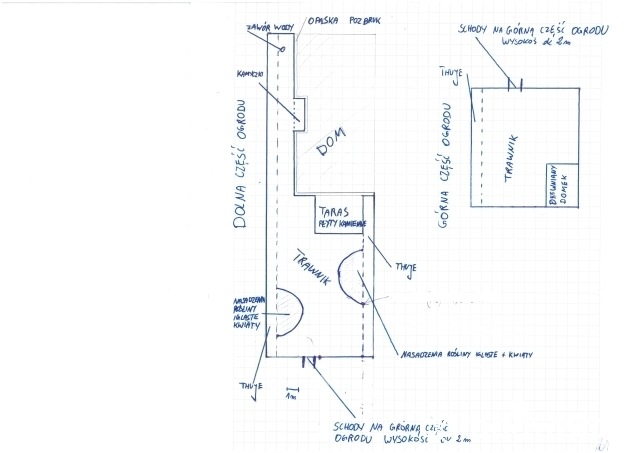 ZAWÓR WODY
OPASKA POZBRUK
KAMYCZKI
DOLNA CZĘŚĆ OGRODU
DOM
TARAS
PŁYTY KAMIENNE
TRAWNIK
THUJE
NASADZENIA
ROŚLINY
IGLASTE
KWIATY
NASADZENIA ROŚLINY IGLASTE + KWIATY
THUJE
1m
SCHODY NA GRÓRNĄ CZĘŚĆ
OGRODU WYSOKOŚĆ OK 2m
SCHODY NA GÓRNĄ CZĘŚĆ OGRODU
WYSOKOŚ OK 2m
THUJE
GÓRNA CZĘŚĆ OGRODU
TRAWNIK
DREWNIANY
DOMEK